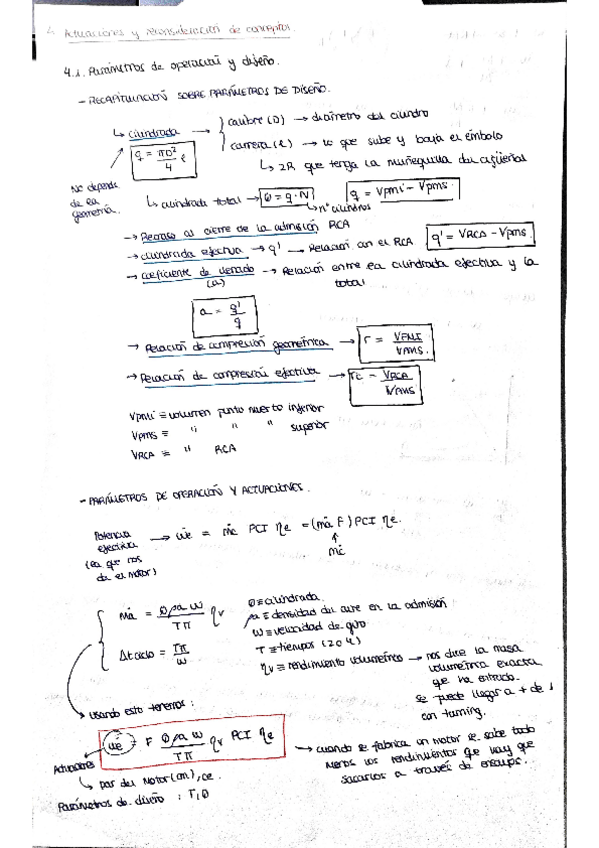 4. Actuaciones y reconsideración de conceptos.
4.1. Parámetros de operación y diseño.
- RECAPITULACIÓN SOBRE PARÁMETROS DE DISEÑO.
↳ cilindrada → { calibre (D) → diámetro del cilindro
carrera (l) → lo que sube y baja el émbolo
q = πD²/4 l
↳ 2R que tenga la muñequilla del cigüeñal
No depende de la geometría.
↳ cilindrada total → Q = q·N
↳ nº cilindros
q = Vpmi - Vpms.
→ Retraso al cierre de la admisión RCA
→ cilindrada efectiva → q' → Relación con el RCA
q' = VRCA - Vpms.
→ coeficiente de llenado → Relación entre la cilindrada efectiva y la
(a) total
a = q'/q
→ Relación de compresión geométrica → r = VPMI/VPMS.
→ Relación de compresión efectiva → rc = VRCA/VPMS
Vpmi ≡ volumen punto muerto inferior
Vpms ≡ " " " superior
VRCA ≡ " RCA
- PARÁMETROS DE OPERACIÓN Y ACTUACIONES.
Potencia efectiva → ẇe = ṁc PCI ηe = (ṁa F) PCI ηe.
(la que nos da el motor)
↑
ṁc
ṁa = Q ρa ω / Tπ ηv
Δt ciclo = Tπ/ω
Q ≡ cilindrada.
ρa ≡ densidad del aire en la admisión
ω ≡ velocidad de giro
T ≡ tiempos (2 o 4)
ηv ≡ rendimiento volumétrico → nos dice la masa
volumétrica exacta
que ha entrado.
se puede llegar a + de 1
con tuning.
↘ usando esto tenemos:
ẇe = F Q ρa ω / Tπ ηv PCI ηe
→ cuando se fabrica un motor se sabe todo
menos los rendimientos que hay que
sacarlos a través de ensayos.
Actuaciones
↳ par del motor (m), ce.
Parámetros de diseño : T, Q